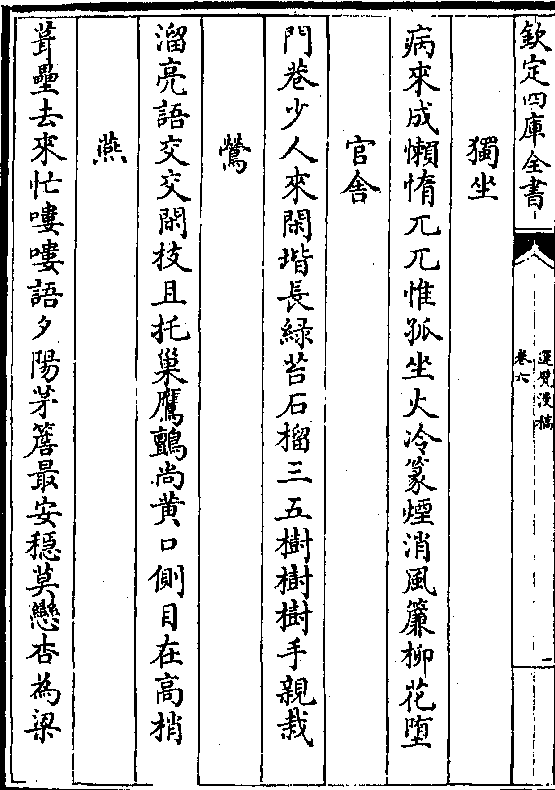 欽定四庫全書
運甓漫稿
卷六
二
獨坐
病來成懶惰兀兀惟孤坐火冷篆煙消風簾柳花墮
官舍
門巷少人來閑堦長緑苔石榴三五樹樹樹手親栽
鶯
溜亮語交交閑枝且托巢鷹鸇尚黄口側目在高梢
燕
葺壘去來忙嘍嘍語夕陽茅簷最安穏莫戀杏為梁